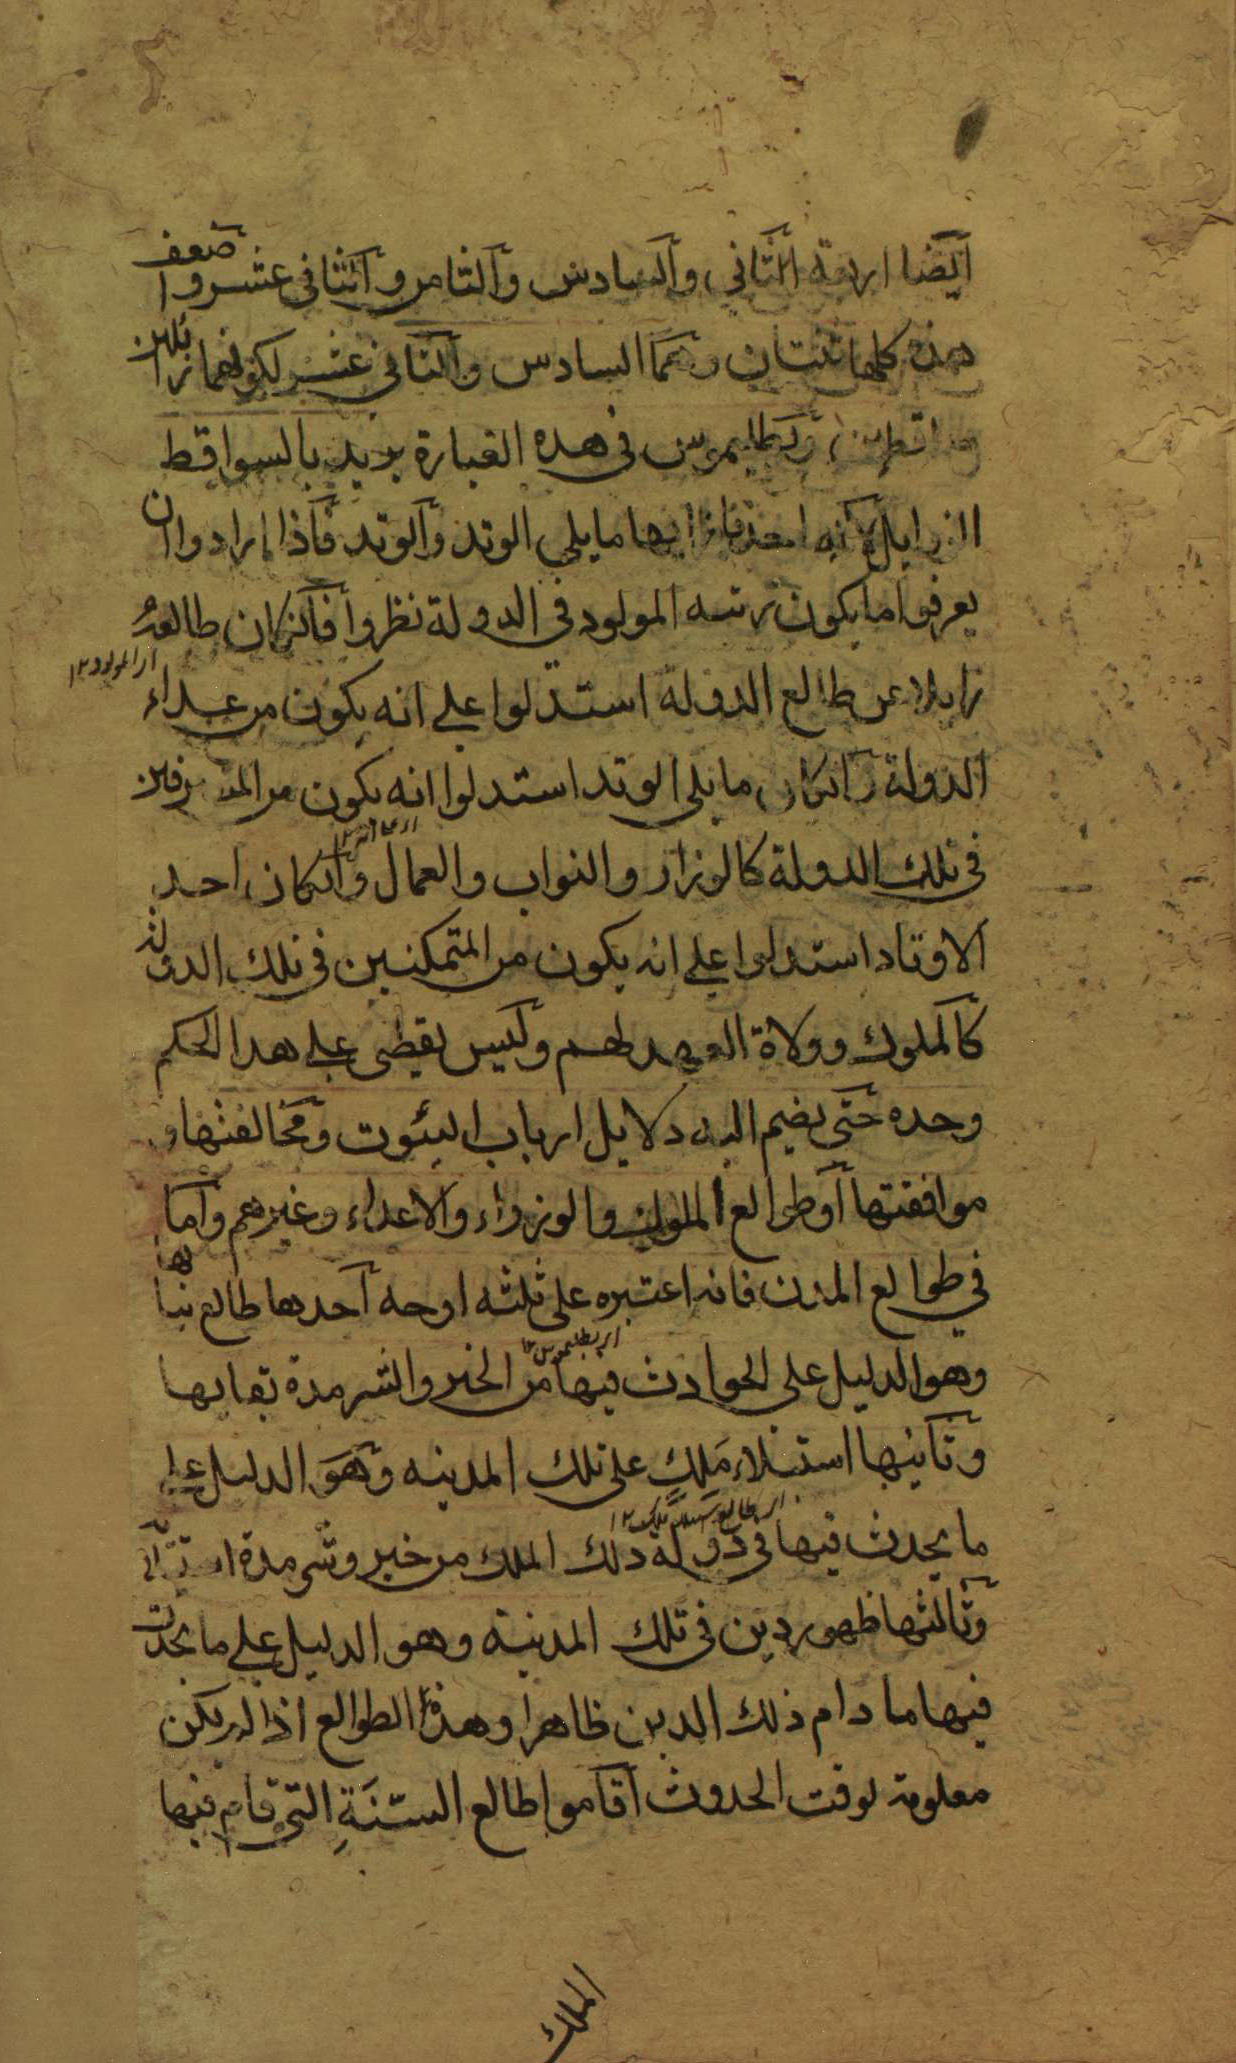 ايضا اربعة الثاني والسادس والثامن والثاني عشر واضعف
هذه كلها بيتان وهما السادس والثاني عشر لكونهما زائلين
ساقطين وبطليموس في هذه العبارة يريد بالسواقط
الزوايل لانه ايها مايلي الوتد والوتد فاذا ارادوا ان
يعرفوا ما يكون رتبه المولود في الدولة نظروا فان كان طالعهُ
اى المولود ١٢
زايلا عن طالع الدولة استدلوا على انه يكون من اعداء
الدولة وان كان مايلى الوتد استدلوا انه يكون من المتصرفين
في تلك الدولة كالوزراء والنواب والعمال وان كان احد
الاوتاد استدلوا على انه يكون من المتمكنين في تلك الدولة
كالملوك وولاة العهد لهم وليس يقضى على هذا الحكم
وحده حتى يضم اليه دلايل ارباب البيوت ومخالفتها و
موافقتها او طوالع الملوك والوزراء والاعداء وغيرهم واما
في طوالع المدن فانه اعتبره على ثلثه اوجه احدها طالع بنائها
اى بطليموس ١٢
وهو الدليل على الحوادث فيها من الخير والشر مدة بقايها
وثانيها استيلاء مَلِكٍ على تلك المدينه وهو الدليل على
ما يحدث فيها في دولة ذلك الملك من خير وشر مدة استيلائه
وثالثها ظهور دين في تلك المدينة وهو الدليل على ما يحدث
فيها ما دام ذلك الدين ظاهرا وهذه الطوالع اذا لم يكن
معلومة لوقت الحدوث اقاموا طالع السنَةِ التي قام فيها
الملك